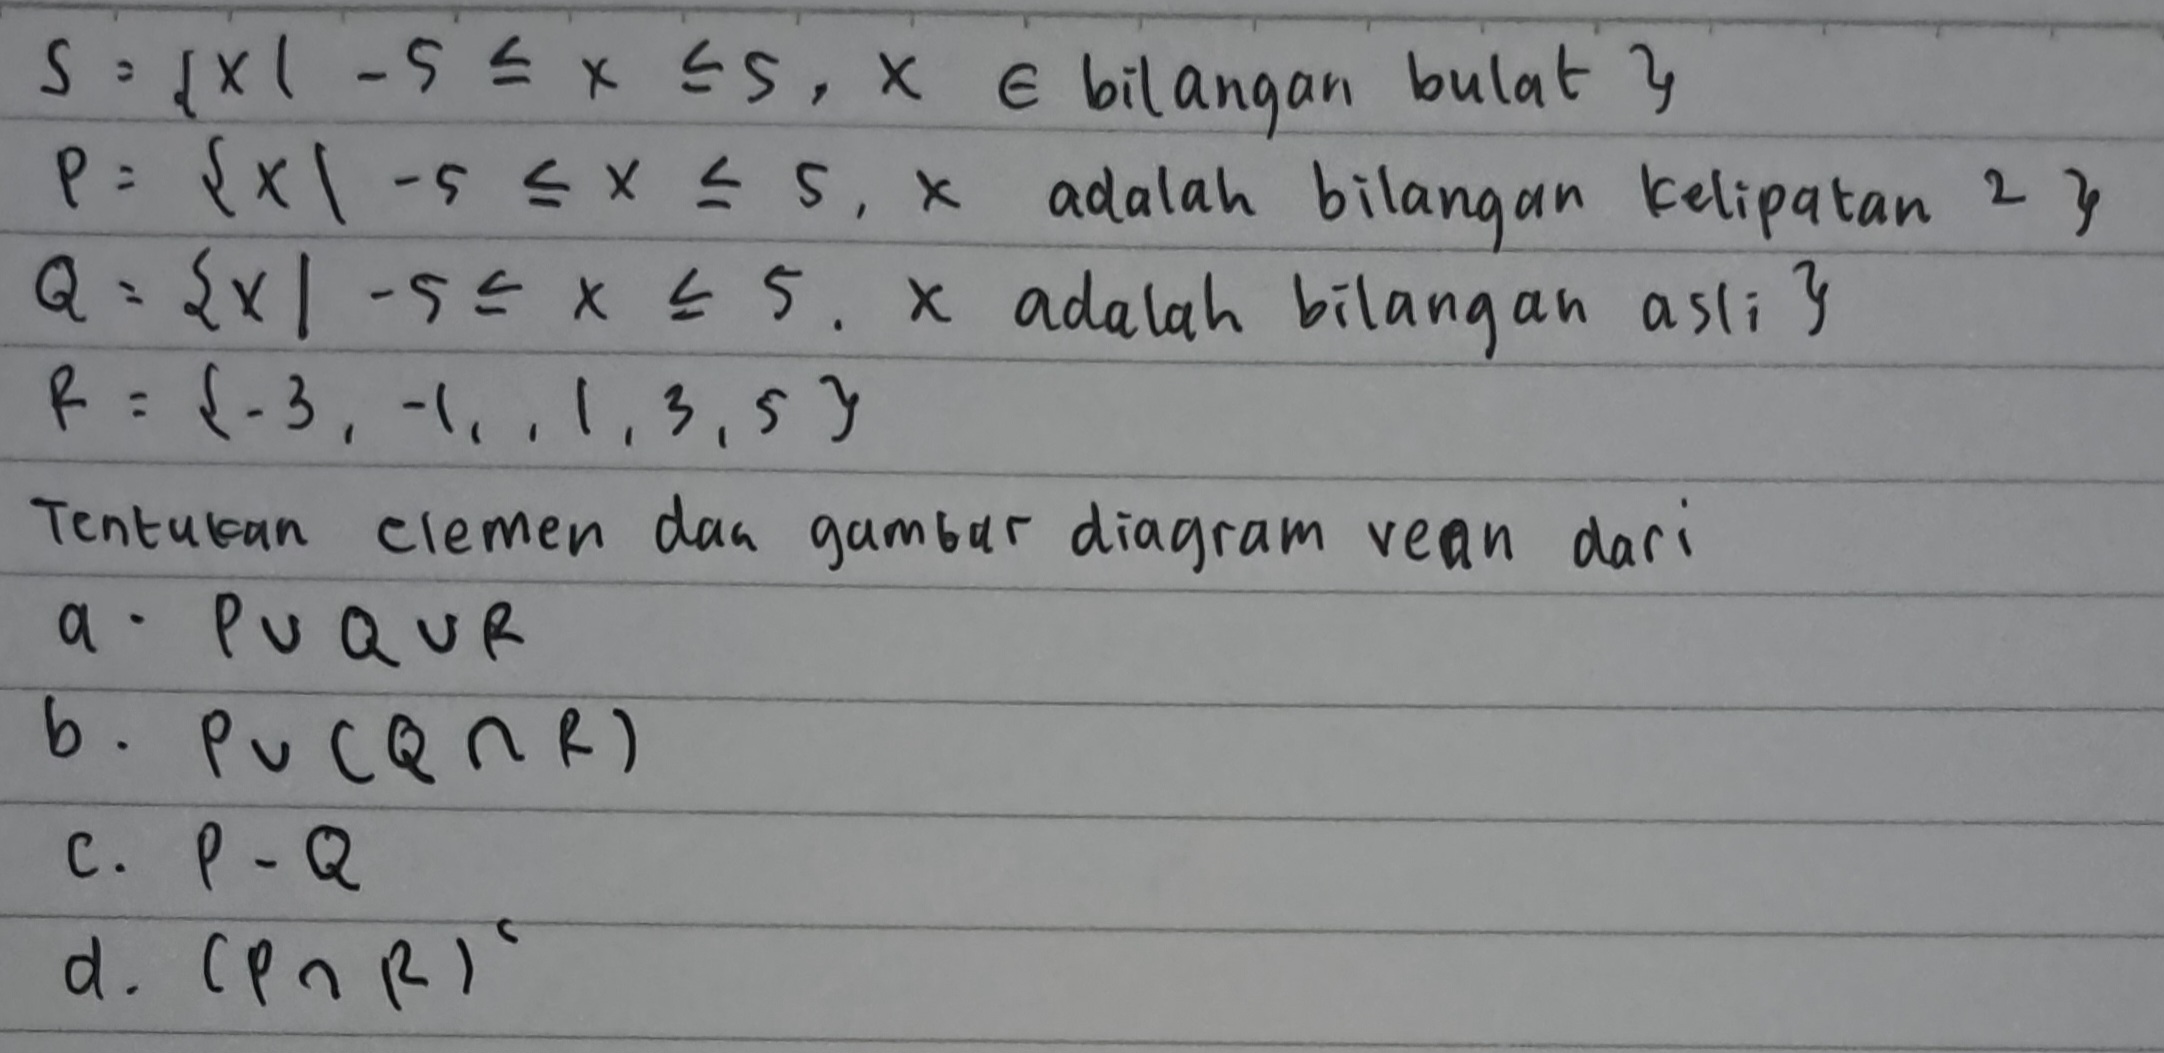 S = {x| -5 ≤ x ≤ 5, x ∈ bilangan bulat }
P = {x| -5 ≤ x ≤ 5, x adalah bilangan kelipatan 2 }
Q = {x| -5 ≤ x ≤ 5. x adalah bilangan asli }
R = {-3, -1, , 1, 3, 5 }
Tentukan elemen dan gambar diagram venn dari
a. P ∪ Q ∪ R
b. P ∪ (Q ∩ R)
c. P - Q
d. (P ∩ R)ᶜ